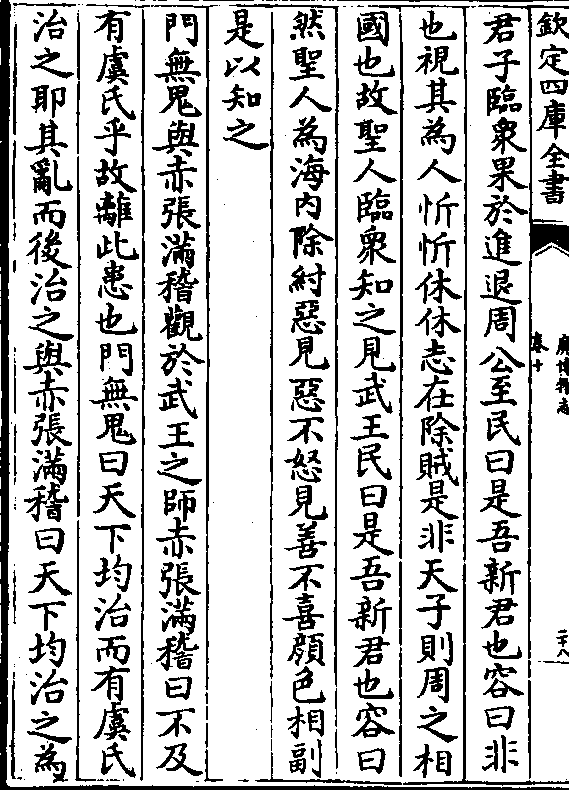 欽定四庫全書
廣博物志
卷十
二十八
君子臨衆果於進退周公至民曰是吾新君也容曰非
也視其為人忻忻休休志在除賊是非天子則周之相
國也故聖人臨衆知之見武王民曰是吾新君也容曰
然聖人為海內除紂惡見惡不怒見善不喜顔色相副
是以知之
門無鬼與赤張滿稽觀於武王之師赤張滿稽曰不及
有虞氏乎故離此患也門無鬼曰天下均治而有虞氏
治之耶其亂而後治之與赤張滿稽曰天下均治之為